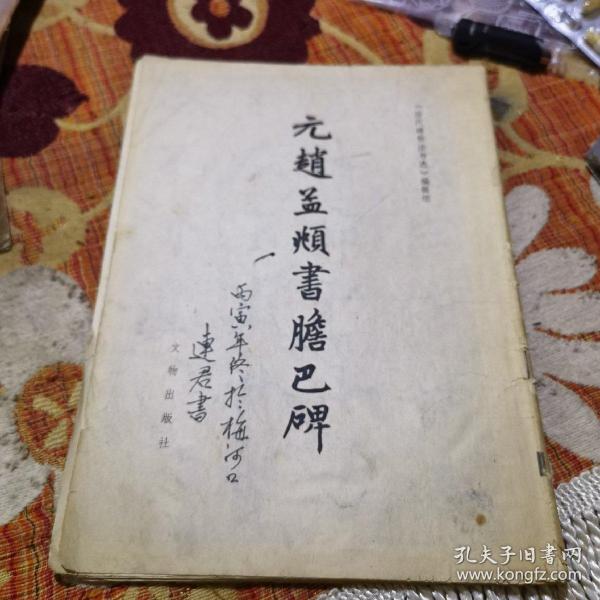 《历代碑帖法书选》编辑组
元趙孟頫書膽巴碑
丙寅年终於梅河口
連君書
文物出版社
孔夫子旧书网
www.kongfz.com